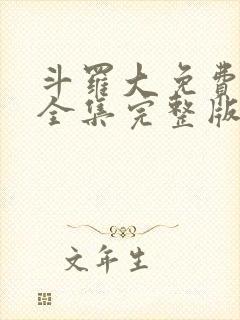 斗羅大免費
全集完整版
文年生